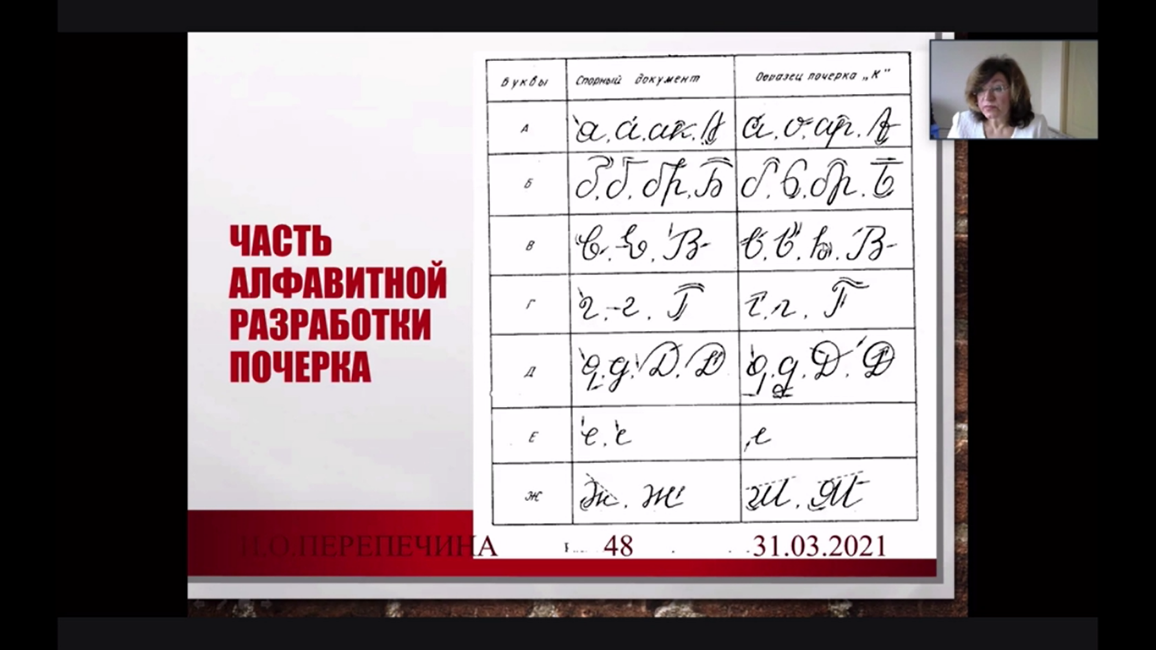 ЧАСТЬ
АЛФАВИТНОЙ
РАЗРАБОТКИ
ПОЧЕРКА
Буквы Спорный документ Образец почерка „К"
А а. а. ак. А а. о. ар. А
Б б. б. бр. Б б. б. бр. Б
В в. в. В в. в. в. В
Г г. г. Г г. г. Г
Д д. д. Д. Д д. д. Д. Д
Е е. е е
Ж ж. ж ж. ж
И.О ПЕРЕПЕЧИНА 48 31.03.2021